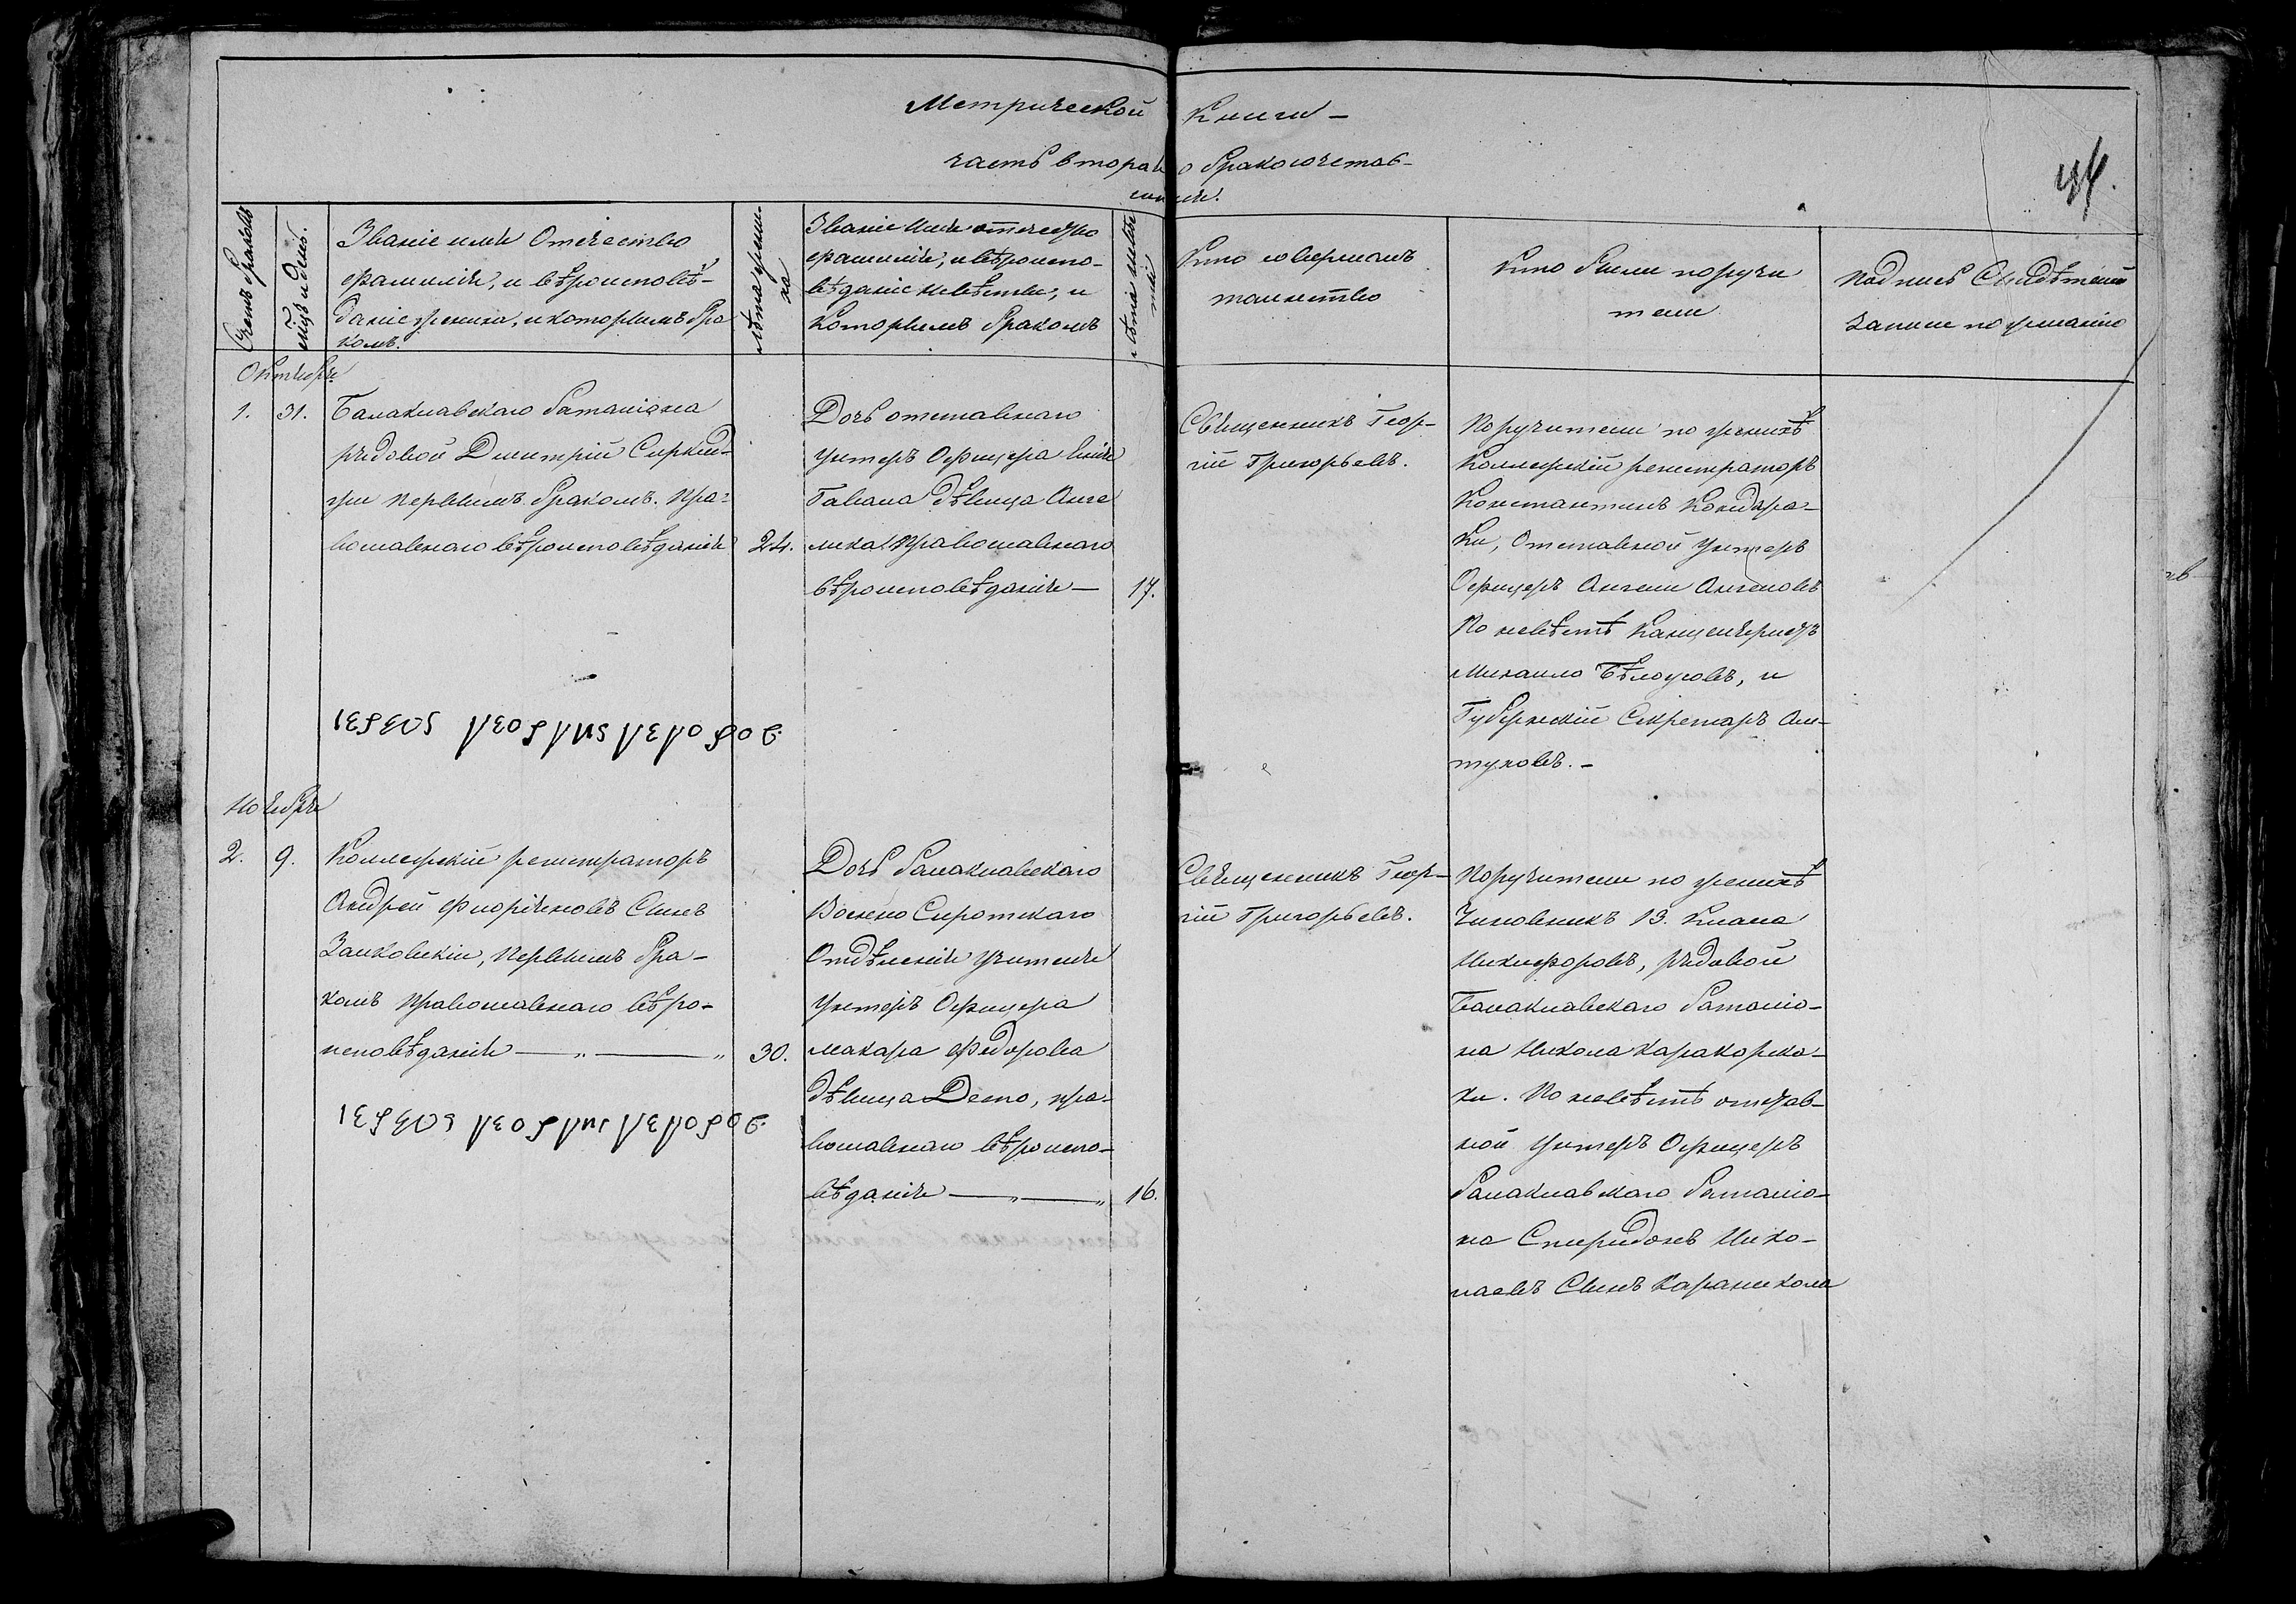 Метрической Книги —
часть вторая о бракосочетав-
шихся.
34.
Счетъ браковъ
мѣсяцъ и день.
Званіе имя Отечество
фамилія, и вѣроисповѣ-
даніе жениха, и которымъ бра
комъ.
лѣта жени-
ха
Званіе имя отечество
фамилія, и вѣроиспо-
вѣданіе невѣсты, и
Которымъ бракомъ
лѣта невѣс
ты
Кто совершалъ
таинство
Кто были поручи
тели
Подпись Свидѣтелей
записи по желанію
Октября
1.
31.
Балаклавскаго баталіона
рядовой Димитрій
первымъ бракомъ. пра-
вославнаго вѣроисповѣданія
24.
Дочь отставнаго
унтеръ Офицера
дѣвица Анге
лика Православнаго
вѣроисповѣданія —
17.
Священникъ Геор-
гій Григорьевъ.
Поручители по женихѣ
Коллежскій регистраторъ
Константинъ Кондара-
ки, Отставной Унтеръ
Офицеръ Ангели Ангеловъ
По невѣстѣ Канцеляристъ
Михаило Бѣлоусовъ, и
Губернскій Секретарь Ал-
туховъ. —
Ноября
2.
9.
Коллежскій регистраторъ
Андрей Флоріяновъ Сынъ
Залковскій, первымъ бра-
комъ православнаго вѣро-
исповѣданія — „ — „
30.
Дочь балаклавскаго
Военно Сиротскаго
Отдѣленія учителя
унтеръ Офицера
макара Федорова
дѣвица Деспо, пра-
вославнаго вѣроиспо-
вѣданія — „ — „
16.
Священникъ Геор-
гій Григорьевъ.
Поручители по женихѣ
Чиновникъ 13. Класа
Никифоровъ, рядовой
Балаклавскаго баталіо-
на Никола
По невѣстѣ отстав-
ной унтеръ Офицеръ
балаклавскаго баталіо-
на Спиридонъ Нико-
лаевъ Сынъ Караникола